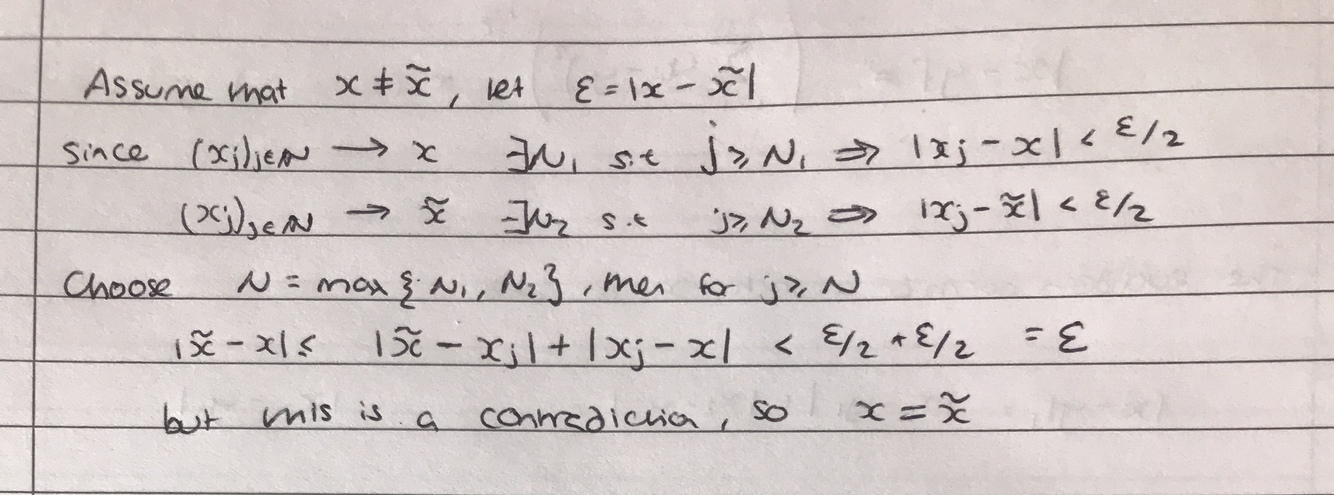 Assume that x ≠ x̃, let ε = |x - x̃|
since (xj)j∈ℕ → x ∃N₁ s.t j ≥ N₁ ⇒ |xj - x| < ε/2
(xj)j∈ℕ → x̃ ∃N₂ s.t j ≥ N₂ ⇒ |xj - x̃| < ε/2
Choose N = max {N₁, N₂}, then for j ≥ N
|x̃ - x| ≤ |x̃ - xj| + |xj - x| < ε/2 + ε/2 = ε
but this is a contradiction, so x = x̃